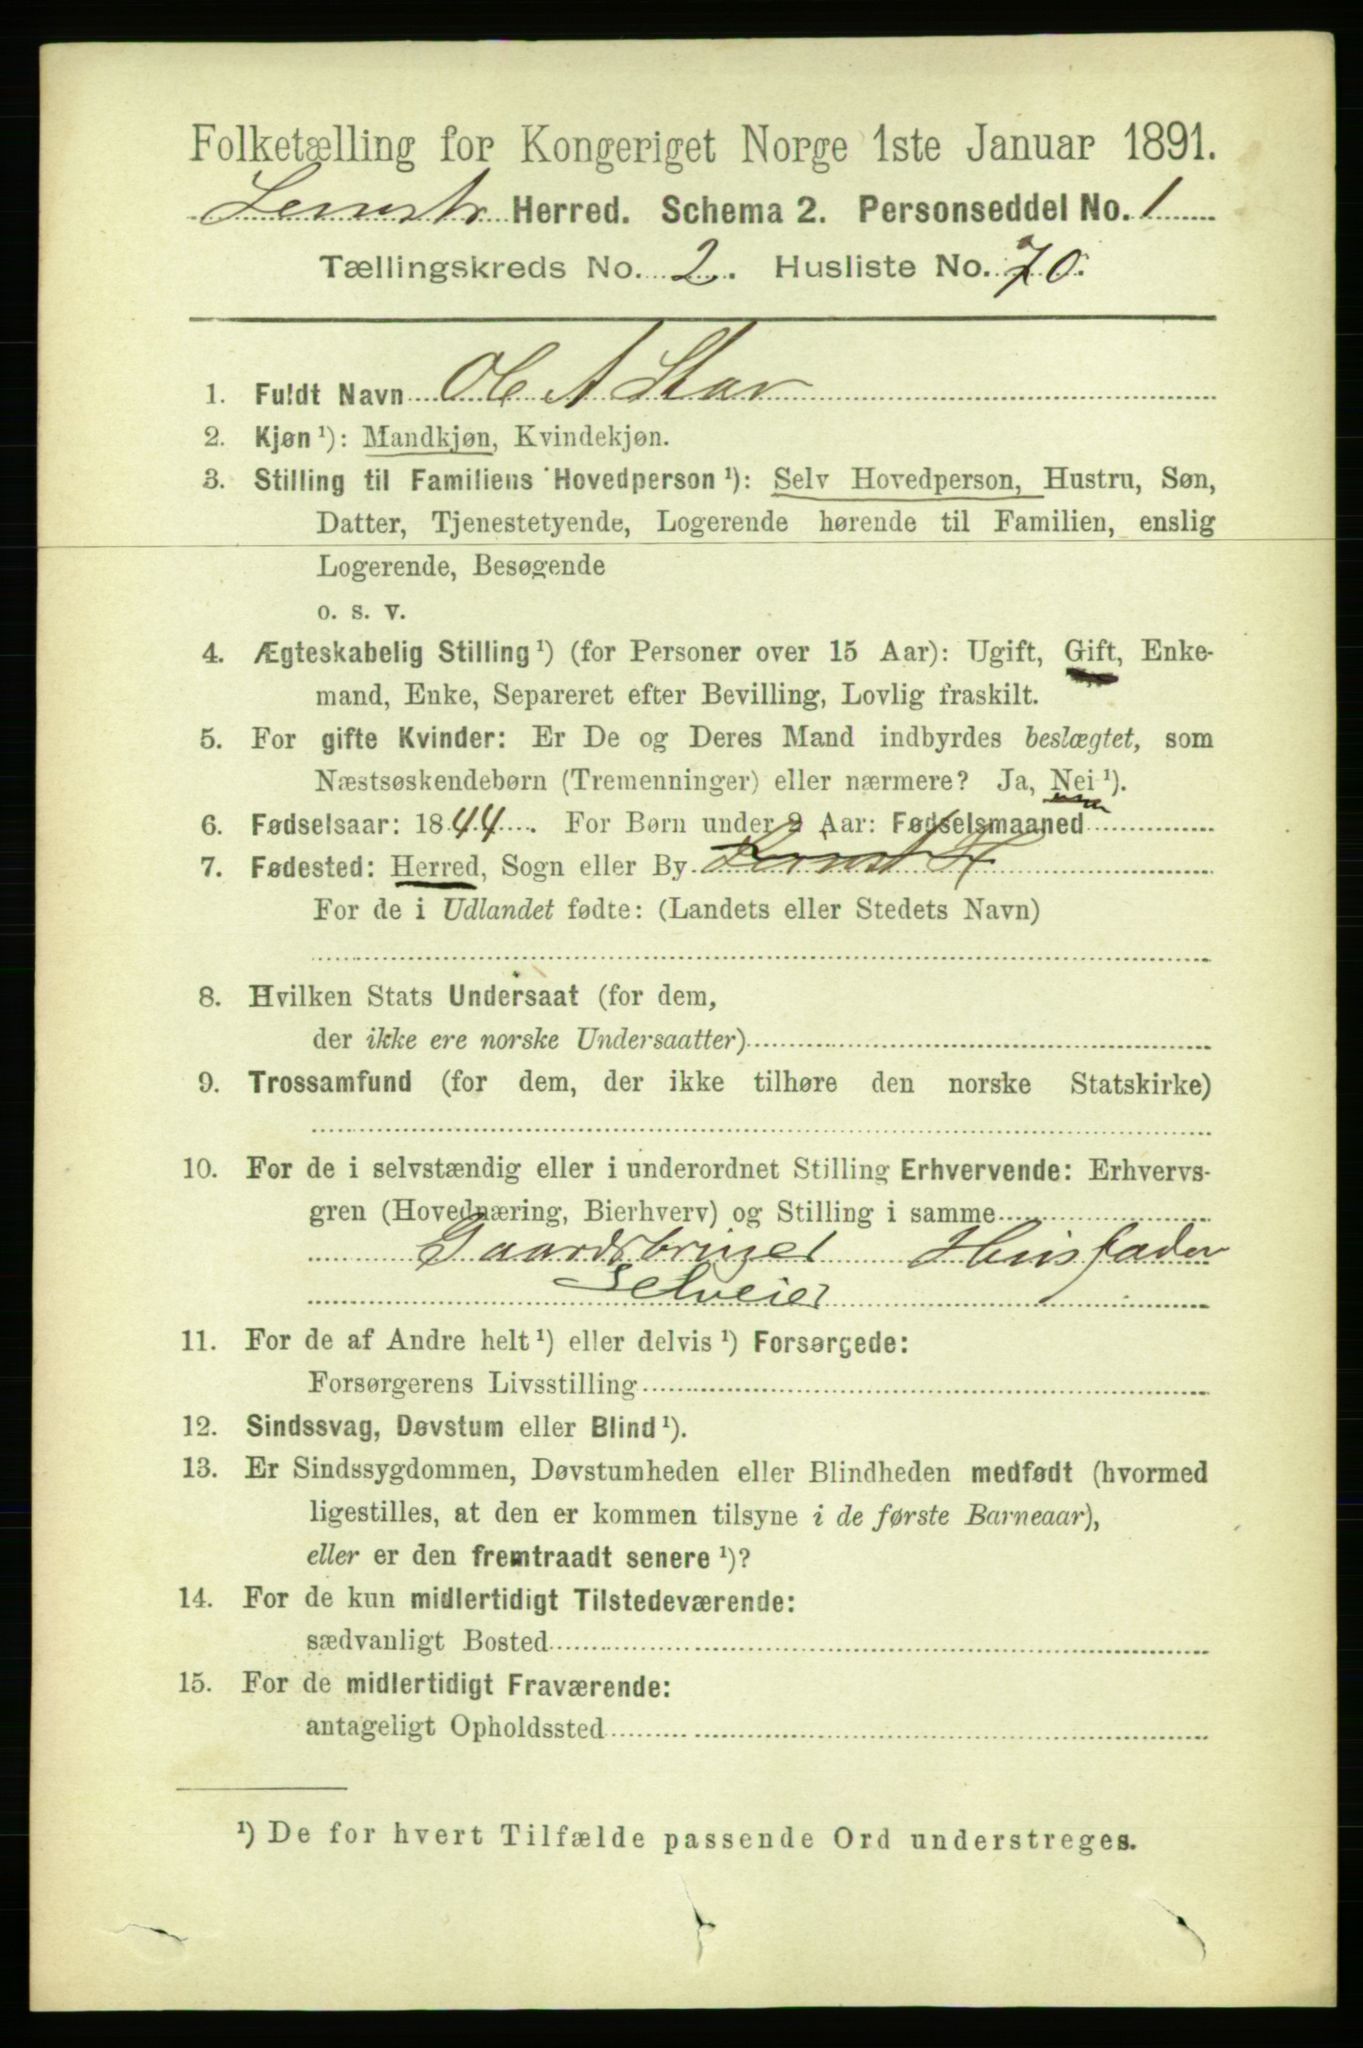 Folketælling for Kongeriget Norge 1ste Januar 1891.
Herred. Schema 2. Personseddel No. 1
Tællingskreds No. 2. Husliste No. 70.
1. Fuldt Navn Ole A Stav
2. Kjøn ¹): Mandkjøn, Kvindekjøn.
3. Stilling til Familiens Hovedperson ¹): Selv Hovedperson, Hustru, Søn,
Datter, Tjenestetyende, Logerende hørende til Familien, enslig
Logerende, Besøgende
o. s. v.
4. Ægteskabelig Stilling ¹) (for Personer over 15 Aar): Ugift, Gift, Enke-
mand, Enke, Separeret efter Bevilling, Lovlig fraskilt.
5. For gifte Kvinder: Er De og Deres Mand indbyrdes beslægtet, som
Næstsøskendebørn (Tremenninger) eller nærmere? Ja, Nei ¹).
6. Fødselsaar: 1844. For Børn under 2 Aar: Fødselsmaaned
7. Fødested: Herred, Sogn eller By
For de i Udlandet fødte: (Landets eller Stedets Navn)
8. Hvilken Stats Undersaat (for dem,
der ikke ere norske Undersaatter)
9. Trossamfund (for dem, der ikke tilhøre den norske Statskirke)
10. For de i selvstændig eller i underordnet Stilling Erhvervende: Erhvervs-
gren (Hovednæring, Bierhverv) og Stilling i samme
Gaardsbruger Husfader
Selveier
11. For de af Andre helt ¹) eller delvis ¹) Forsørgede:
Forsørgerens Livsstilling
12. Sindssvag, Døvstum eller Blind ¹).
13. Er Sindssygdommen, Døvstumheden eller Blindheden medfødt (hvormed
ligestilles, at den er kommen tilsyne i de første Barneaar),
eller er den fremtraadt senere ¹)?
14. For de kun midlertidigt Tilstedeværende:
sædvanligt Bosted
15. For de midlertidigt Fraværende:
antageligt Opholdssted
¹) De for hvert Tilfælde passende Ord understreges.